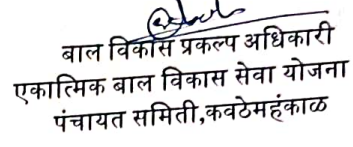 बाल विकास प्रकल्प अधिकारी
एकात्मिक बाल विकास सेवा योजना
पंचायत समिती,कवठेमहंकाळ